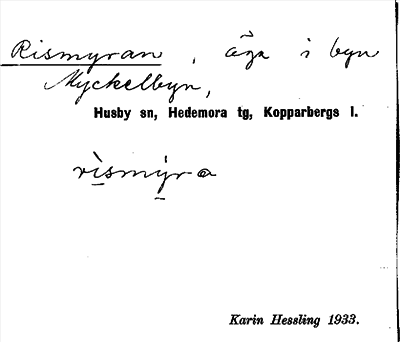 Rismyran, äga i byn
Myckelbyn,
Husby sn, Hedemora tg, Kopparbergs l.
rìsmýra
Karin Hessling 1933.